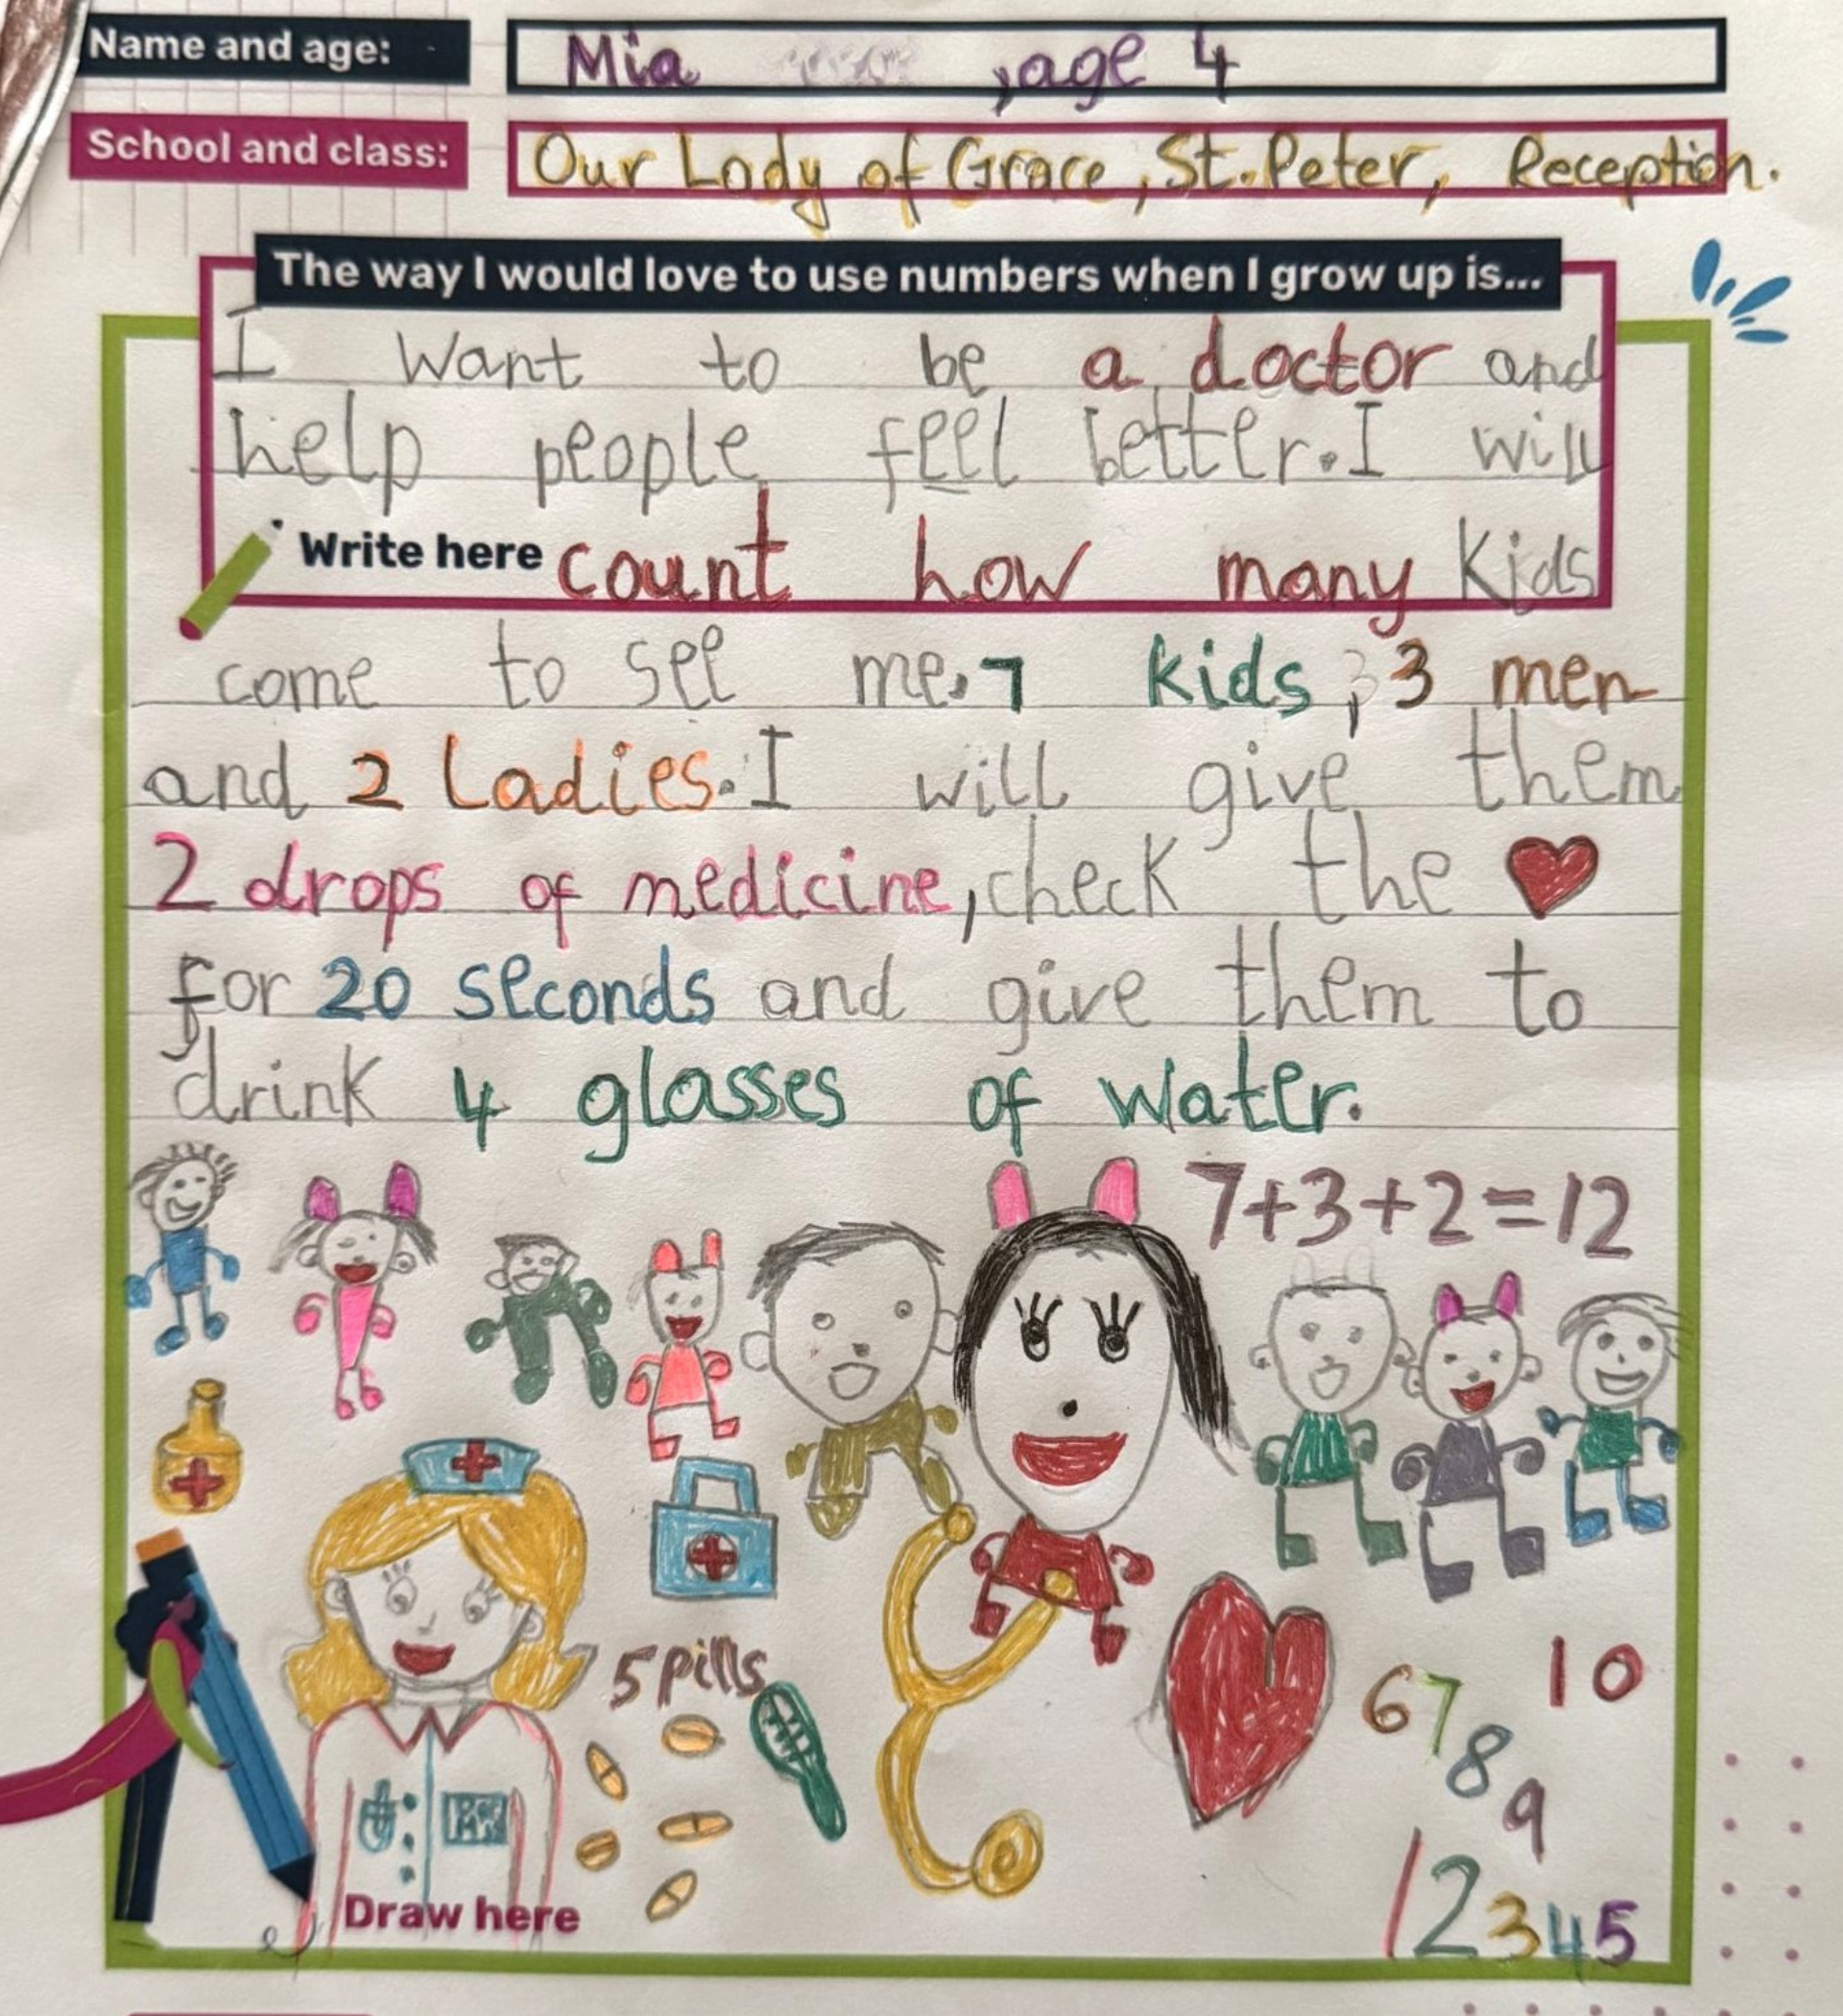 Name and age:
Mia , age 4
School and class:
Our Lady of Grace, St. Peter, Reception.
The way I would love to use numbers when I grow up is...
I want to be a doctor and
help people feel better. I will
Write here count how many kids
come to see me. 7 kids, 3 men
and 2 Ladies. I will give them
2 drops of medicine, check the ❤
for 20 seconds and give them to
drink 4 glasses of water.
7+3+2=12
5 pills
6 7 8 9 10
1 2 3 4 5
Draw here